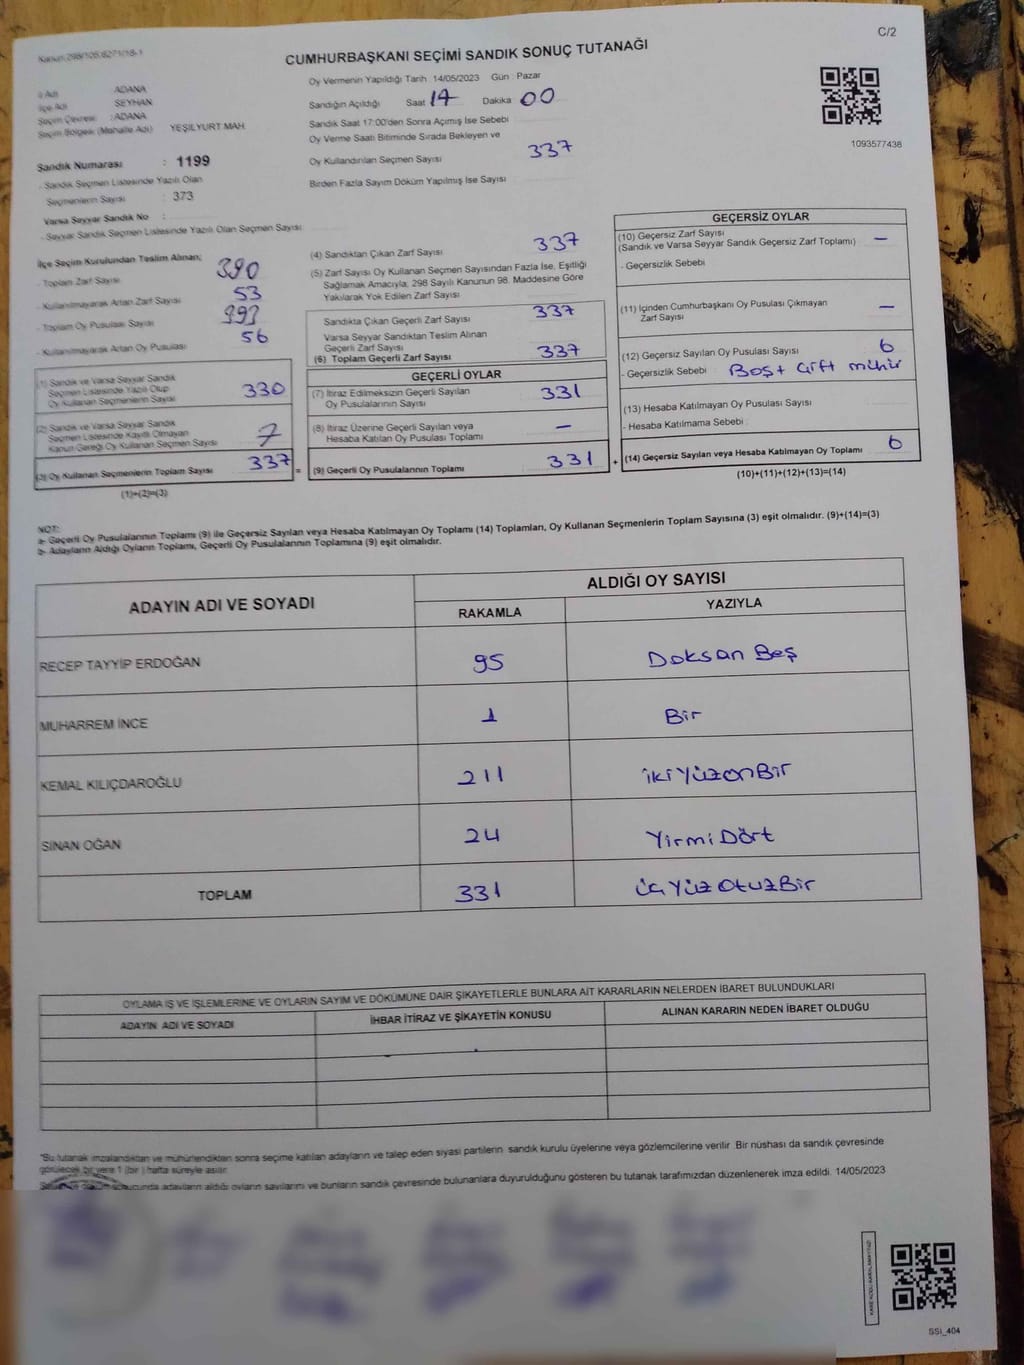 Kanun:298/105;6271/18-1
C/2
CUMHURBAŞKANI SEÇİMİ SANDIK SONUÇ TUTANAĞI
İl Adı ADANA
İlçe Adı SEYHAN
Seçim Çevresi : ADANA
Seçim Bölgesi (Mahalle Adı) YEŞİLYURT MAH.
Sandık Numarası : 1199
- Sandık Seçmen Listesinde Yazılı Olan
Seçmenlerin Sayısı : 373
Varsa Seyyar Sandık No :
- Seyyar Sandık Seçmen Listesinde Yazılı Olan Seçmen Sayısı
Oy Vermenin Yapıldığı Tarih : 14/05/2023 Gün : Pazar
Sandığın Açıldığı Saat 17 Dakika 00
Sandık Saat 17:00'den Sonra Açımış İse Sebebi
Oy Verme Saati Bitiminde Sırada Bekleyen ve
Oy Kullandırılan Seçmen Sayısı 337
Birden Fazla Sayım Döküm Yapılmış İse Sayısı
1093577438
İlçe Seçim Kurulundan Teslim Alınan;
- Toplam Zarf Sayısı 390
- Kullanılmayarak Artan Zarf Sayısı 53
- Toplam Oy Pusulası Sayısı 393
- Kullanılmayarak Artan Oy Pusulası 56
(1) Sandık ve Varsa Seyyar Sandık
Seçmen Listesinde Yazılı Olup
Oy Kullanan Seçmenlerin Sayısı 330
(2) Sandık ve Varsa Seyyar Sandık
Seçmen Listesinde Kayıtlı Olmayan
Kanun Gereği Oy Kullanan Seçmen Sayısı 7
(3) Oy Kullanan Seçmenlerin Toplam Sayısı 337 =
(1)+(2)=(3)
(4) Sandıktan Çıkan Zarf Sayısı 337
(5) Zarf Sayısı Oy Kullanan Seçmen Sayısından Fazla İse, Eşitliği
Sağlamak Amacıyla; 298 Sayılı Kanunun 98. Maddesine Göre
Yakılarak Yok Edilen Zarf Sayısı
Sandıkta Çıkan Geçerli Zarf Sayısı 337
Varsa Seyyar Sandıktan Teslim Alınan
Geçerli Zarf Sayısı
(6) Toplam Geçerli Zarf Sayısı 337
GEÇERLİ OYLAR
(7) İtiraz Edilmeksizin Geçerli Sayılan
Oy Pusulalarının Sayısı 331
(8) İtiraz Üzerine Geçerli Sayılan veya
Hesaba Katılan Oy Pusulası Toplamı –
(9) Geçerli Oy Pusulalarının Toplamı 331 +
GEÇERSİZ OYLAR
(10) Geçersiz Zarf Sayısı –
(Sandık ve Varsa Seyyar Sandık Geçersiz Zarf Toplamı)
- Geçersizlik Sebebi
(11) İçinden Cumhurbaşkanı Oy Pusulası Çıkmayan –
Zarf Sayısı
(12) Geçersiz Sayılan Oy Pusulası Sayısı 6
- Geçersizlik Sebebi Boş+ çift mühür
(13) Hesaba Katılmayan Oy Pusulası Sayısı
- Hesaba Katılmama Sebebi
(14) Geçersiz Sayılan veya Hesaba Katılmayan Oy Toplamı 6
(10)+(11)+(12)+(13)=(14)
NOT:
a- Geçerli Oy Pusulalarının Toplamı (9) ile Geçersiz Sayılan veya Hesaba Katılmayan Oy Toplamı (14) Toplamları, Oy Kullanan Seçmenlerin Toplam Sayısına (3) eşit olmalıdır. (9)+(14)=(3)
b- Adayların Aldığı Oyların Toplamı, Geçerli Oy Pusulalarının Toplamına (9) eşit olmalıdır.
ADAYIN ADI VE SOYADI ALDIĞI OY SAYISI
RAKAMLA YAZIYLA
RECEP TAYYİP ERDOĞAN 95 Doksan Beş
MUHARREM İNCE 1 Bir
KEMAL KILIÇDAROĞLU 211 ikiYüzonBir
SİNAN OĞAN 24 YirmiDört
TOPLAM 331 üçYüzOtuzBir
OYLAMA İŞ VE İŞLEMLERİNE VE OYLARIN SAYIM VE DÖKÜMÜNE DAİR ŞİKAYETLERLE BUNLARA AİT KARARLARIN NELERDEN İBARET BULUNDUKLARI
ADAYIN ADI VE SOYADI İHBAR İTİRAZ VE ŞİKAYETİN KONUSU ALINAN KARARIN NEDEN İBARET OLDUĞU
*Bu tutanak imzalandıktan ve mühürlendikten sonra seçime katılan adayların ve talep eden siyasi partilerin sandık kurulu üyelerine veya gözlemcilerine verilir. Bir nüshası da sandık çevresinde
görülecek bir yere 1 (bir ) hafta süreyle asılır.
Seçim sonucunda adayların aldığı oyların sayılarını ve bunların sandık çevresinde bulunanlara duyurulduğunu gösteren bu tutanak tarafımızdan düzenlenerek imza edildi. 14/05/2023
SSI_404